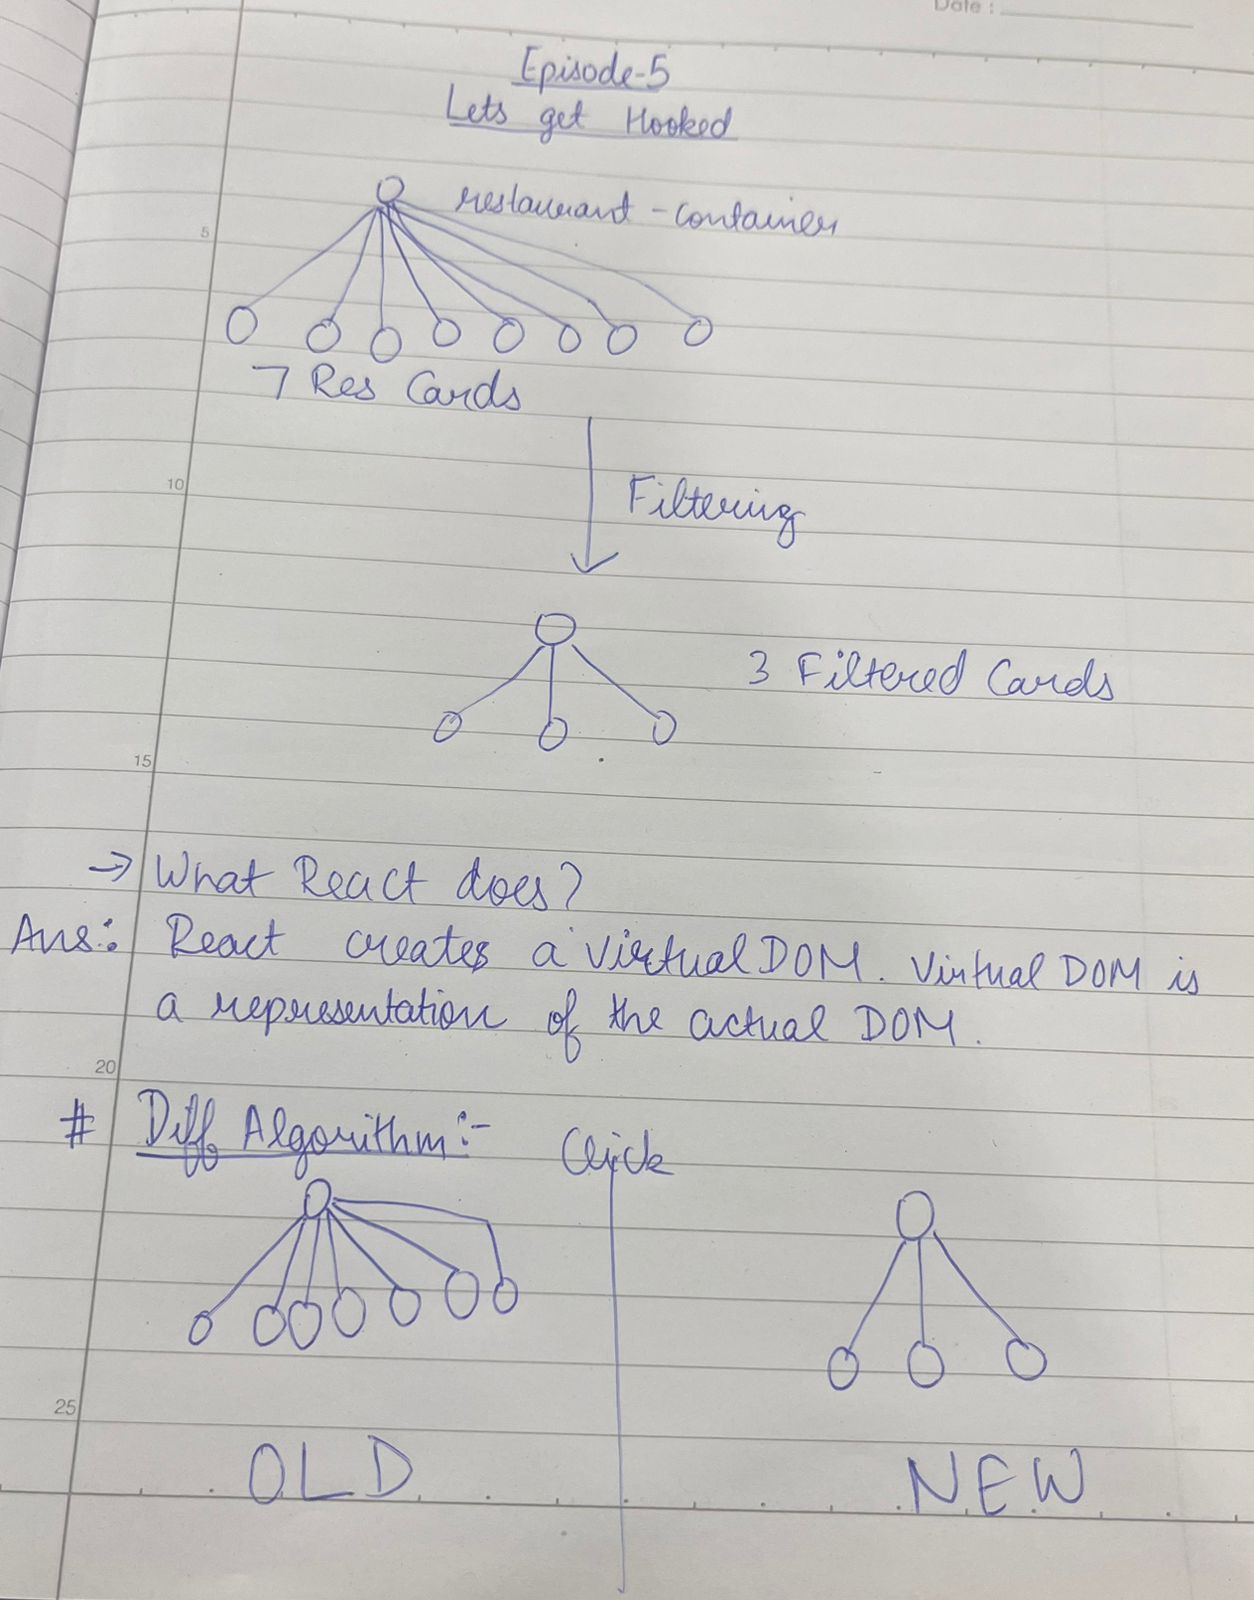 Date :
Episode-5
Lets get Hooked
restaurant - container
5
7 Res Cards
10
Filtering
3 Filtered Cards
15
→ What React does?
Ans:. React creates a virtual DOM. Virtual DOM is
a representation of the actual DOM.
20
# Diff Algorithm :- Click
25
OLD NEW